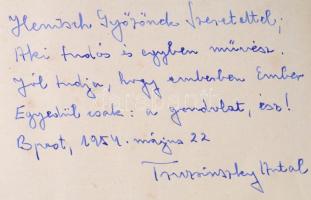 Hentsch Győzőnek Szeretettel;
Aki tudós és egyben művész.
Jól tudja, hogy emberben Ember
Egyedül csak: a gondolat, ész!
Bpest, 1954. május 22
Antal